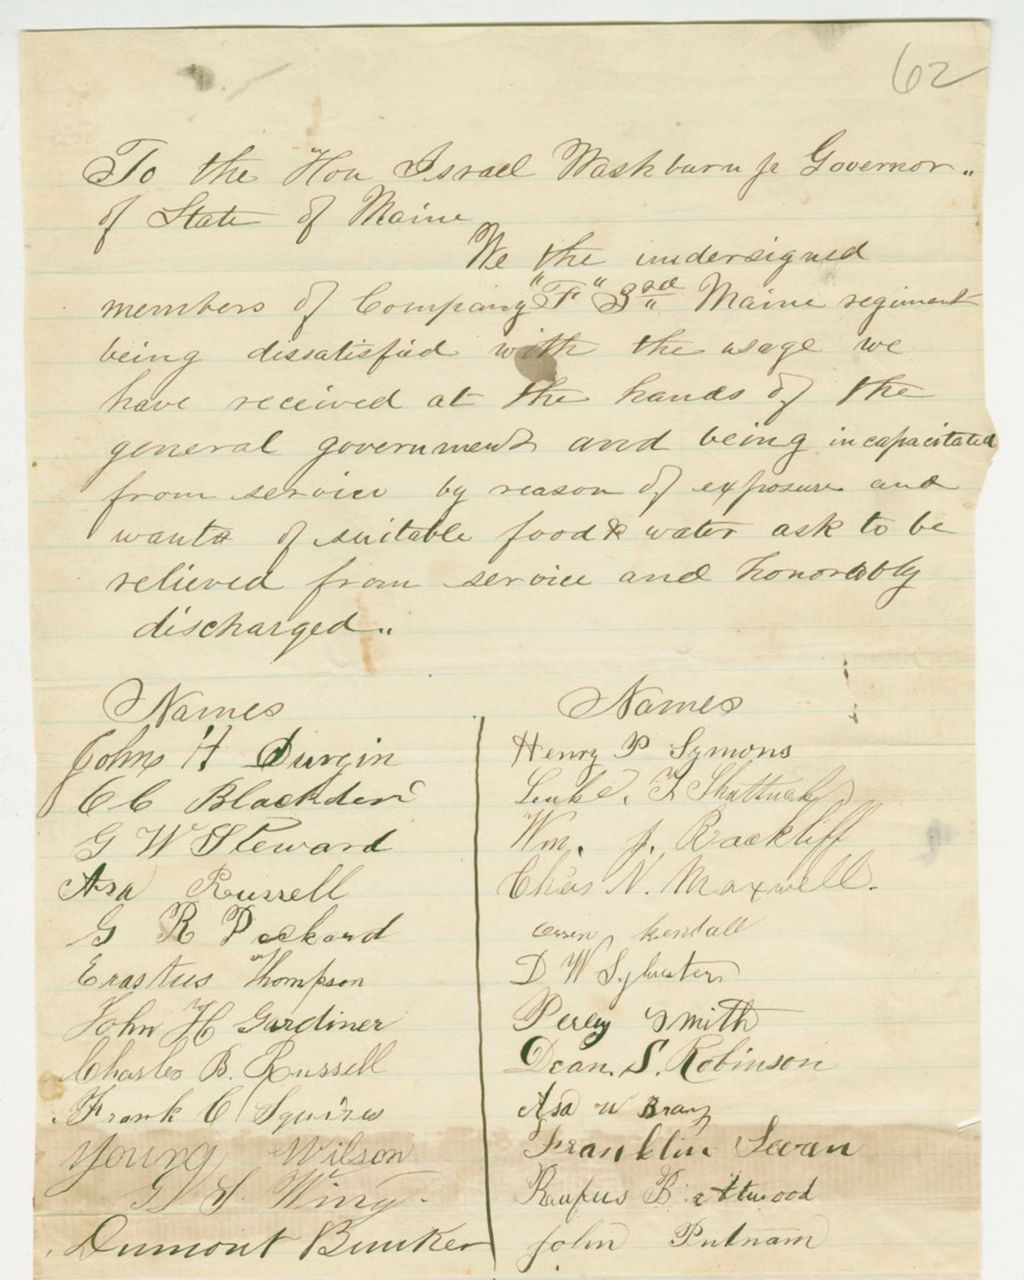 62
To the Hon Israel Washburn jr Governor "
of State of Maine
We the undersigned
members of Company "F" 3rd Maine regiment
being dissatisfied with the usage we
have received at the hands of the
general government and being incapacitated
from service by reason of exposure and
wants of suitable food & water ask to be
relieved from service and honorably
discharged "
Names
John H Durgin
C C Blackden
G W Steward
Asa Russell
G R Packard
Erastus Thompson
John H Gardiner
Charles B. Russell
Frank C Squires
Young Wilson
G S Wing.
Dumont Bunker
Names
Henry P Symons
F Shattuck
Wm. J. Rackliff
Chas N. Maxwell.
Kendall
D W Sylvester
Percy Smith
Dean. S. Robinson
Asa W
Franklin Sevan
Rufus B. Attwood
John Putnam